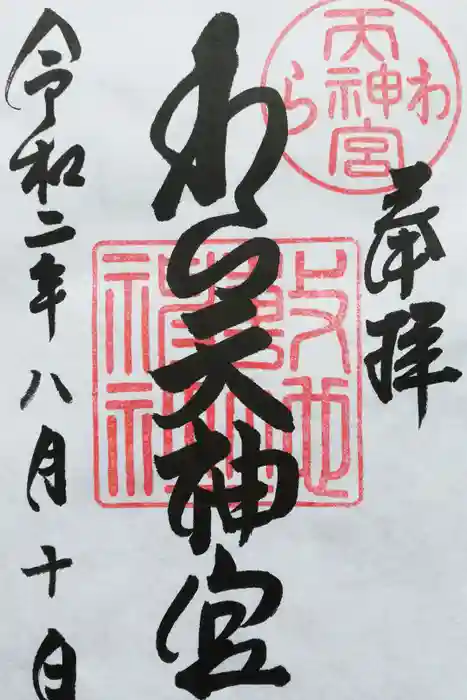 奉拝
天神宮
わら
わら天神宮
敷地
神社
令和二年八月十日